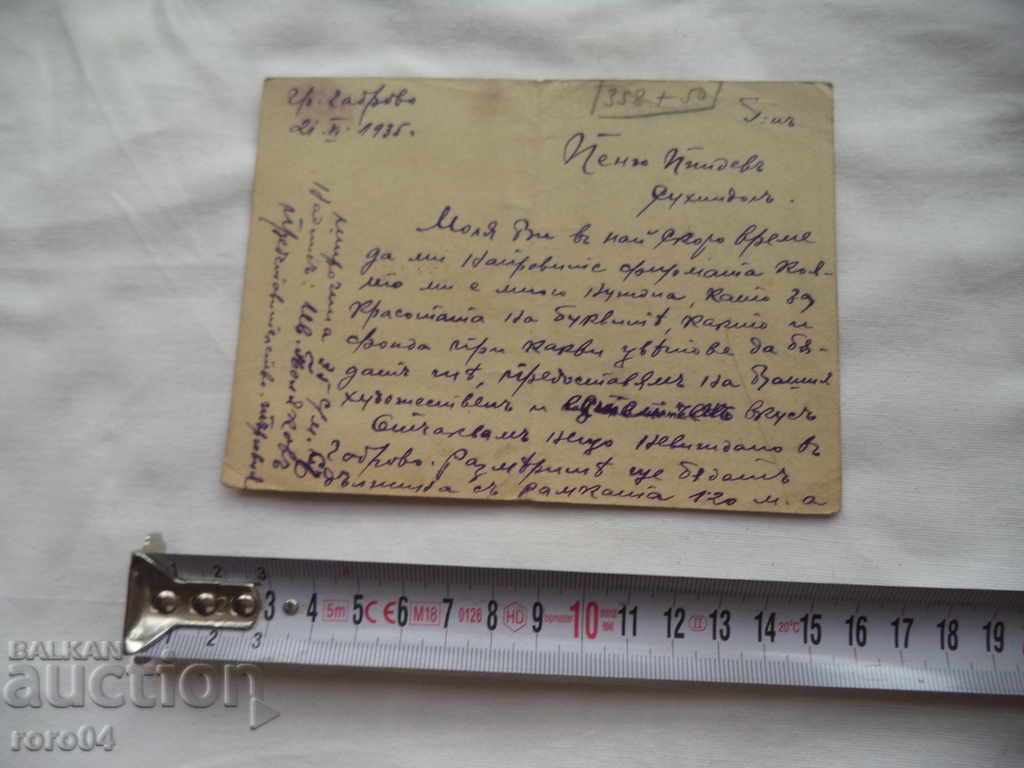 гр. Габрово
21 XI 1935.
358 + 50
Г-нъ
Пеню
Сухиндолъ.
Моля Ви въ най скоро време
да ми направите фирмата коя-
то ми е много нуждна, като за
красотата на буквитѣ, както и
фонда при какви цвѣтове да бѫ-
датъ тѣ, предоставямъ на Вашия
художественъ и вкусъ
Очаквамъ нещо невиждано въ
Габрово. Размѣритѣ ще бѫдатъ
дължина съ рамката 120 м. а
широчина 35 с/м.
Надписъ: Ив.
Представителство.
1 2 3 4 5m 5 CE 6 M18 7 0126 8 HD 9 10 11 12 II 13 14 20°C 15 16 17 18 19
1 2 3
BALKAN
auction
roro04